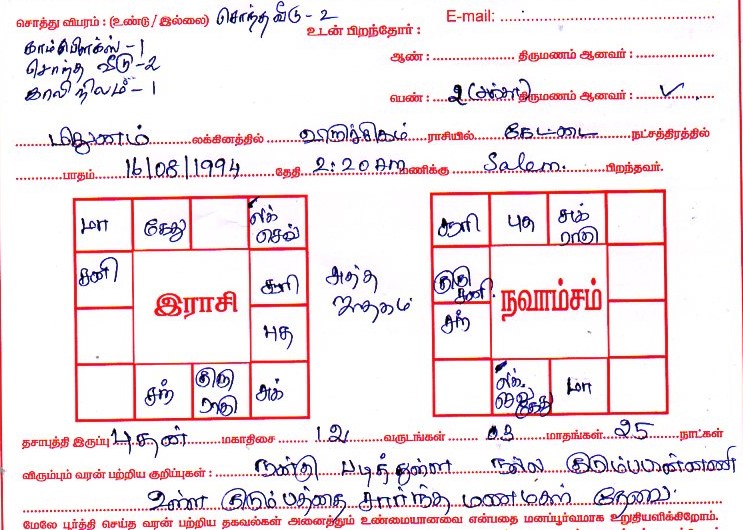 சொத்து விபரம் : (உண்டு / இல்லை) சொந்த வீடு - 2
E-mail:
உடன் பிறந்தோர் :
காம்பிளக்ஸ் - 1
சொந்த வீடு - 2
காலி நிலம் - 1
ஆண் : திருமணம் ஆனவர் :
பெண் : 2 (அக்கா) திருமணம் ஆனவர் : ✓
மிதுனம் லக்கினத்தில் விருச்சிகம் ராசியில் கேட்டை நட்சத்திரத்தில்
பாதம் 16/08/1994 தேதி 2:20 am மணிக்கு Salem. பிறந்தவர்.
மா கேது லக் செவ்
சனி சூரி
இராசி
புத
சந் குரு ராகு சுக்
அத்த ஜாதகம்
சூரி புத சுக் ராகு
குரு சனி
நவாம்சம்
சந்
லக் கேது மா
தசாபுத்தி இருப்பு புதன் மகாதிசை 12 வருடங்கள் 03 மாதங்கள் 25 நாட்கள்
விரும்பும் வரன் பற்றிய குறிப்புகள் : நன்கு படித்துள்ள நல்ல குடும்ப பின்னணி
உள்ள குடும்பத்தை சார்ந்த மணமகள் தேவை
மேலே பூர்த்தி செய்த வரன் பற்றிய தகவல்கள் அனைத்தும் உண்மையானவை என்பதை மனப்பூர்வமாக உறுதியளிக்கிறோம்.